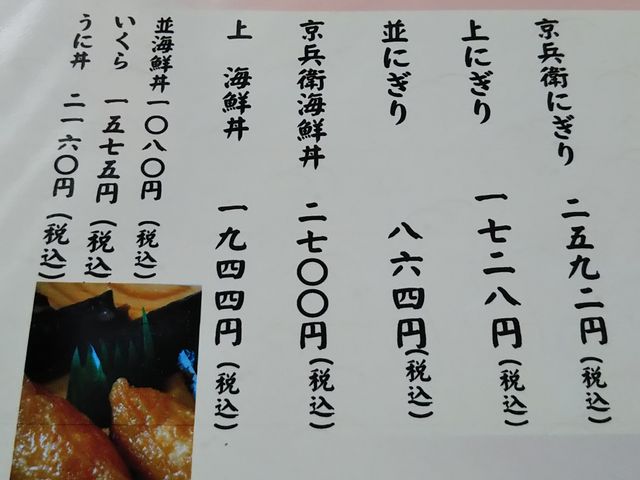 京兵衛にぎり 二五九二円(税込)
上にぎり 一七二八円(税込)
並にぎり 八六四円(税込)
京兵衛海鮮丼 二七〇〇円(税込)
上 海鮮丼 一九四四円(税込)
並海鮮丼 一〇八〇円(税込)
いくら 一五七五円(税込)
うに丼 二一六〇円(税込)